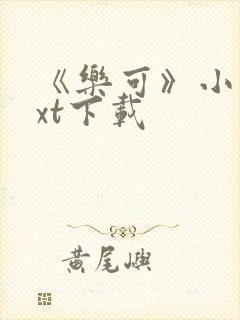 《樂可》小
xt下載
黃尾嶼